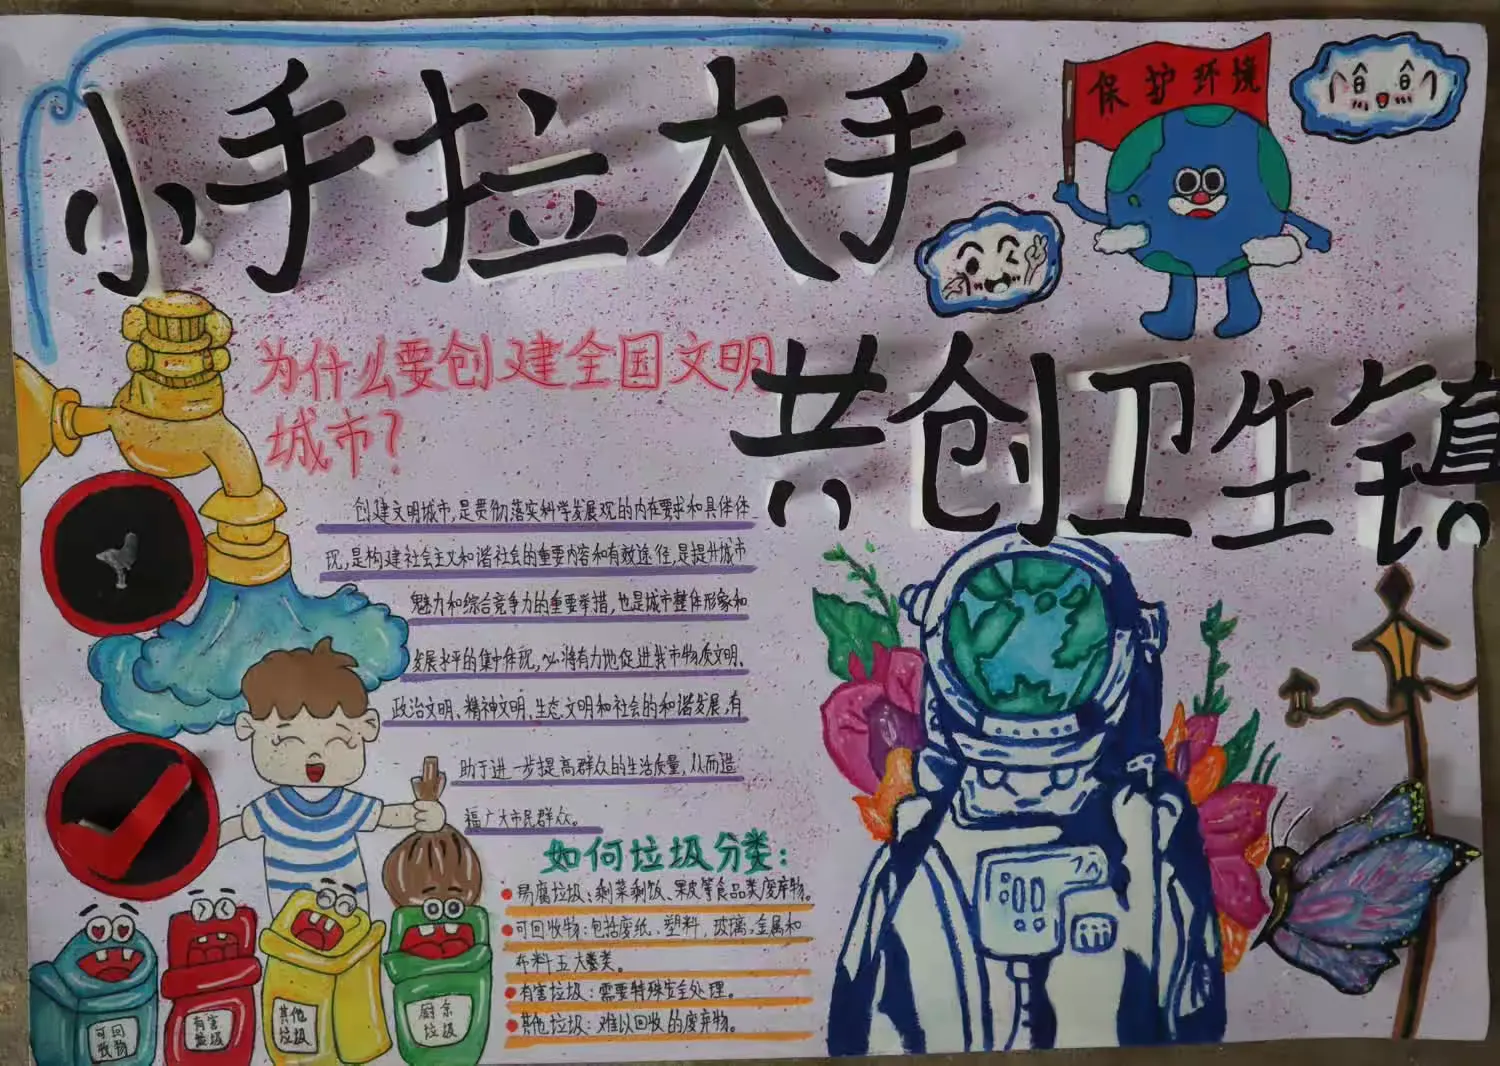 小手拉大手
保护环境
共创卫生镇
为什么要创建全国文明
城市?
创建文明城市,是贯彻落实科学发展观的内在要求和具体体
现,是构建社会主义和谐社会的重要内容和有效途径,是提升城市
魅力和综合竞争力的重要举措,也是城市整体形象和
发展水平的集中体现,必将有力地促进我市物质文明、
政治文明、精神文明、生态文明和社会的和谐发展,有
助于进一步提高群众的生活质量,从而造
福广大市民群众。
如何垃圾分类:
易腐垃圾:剩菜剩饭、果皮等食品类废弃物。
可回收物:包括废纸,塑料,玻璃,金属和
布料五大类。
有害垃圾:需要特殊安全处理。
其他垃圾:难以回收的废弃物。
可回
收物
有害
垃圾
其他
垃圾
厨余
垃圾